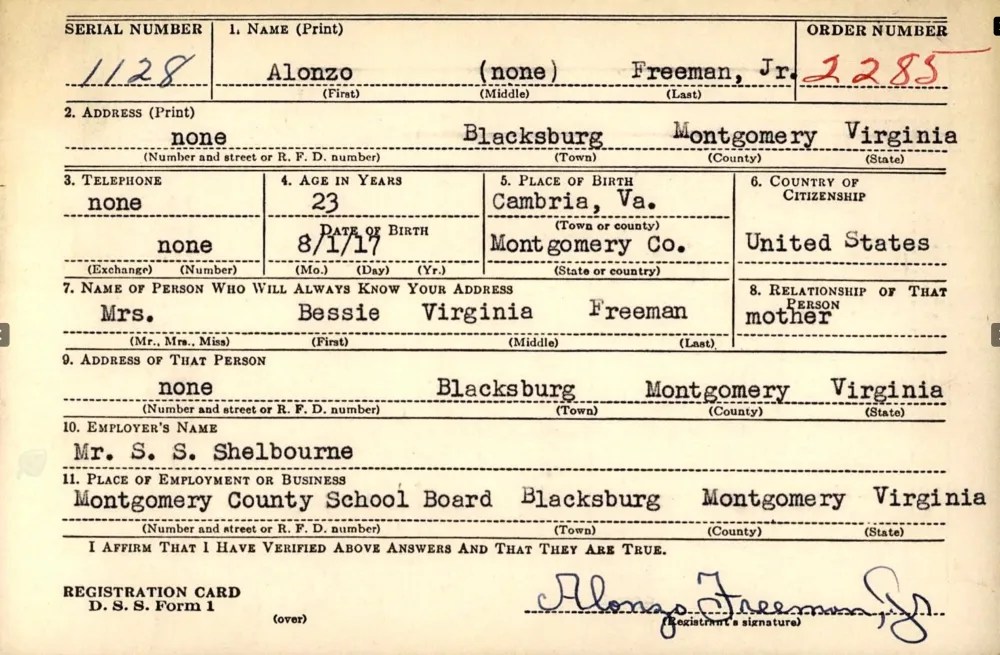 SERIAL NUMBER 1. NAME (Print) ORDER NUMBER
1128 Alonzo (none) Freeman, Jr. 2285
(First) (Middle) (Last)
2. ADDRESS (Print)
none Blacksburg Montgomery Virginia
(Number and street or R. F. D. number) (Town) (County) (State)
3. TELEPHONE 4. AGE IN YEARS 5. PLACE OF BIRTH 6. COUNTRY OF
CITIZENSHIP
none 23 Cambria, Va.
DATE OF BIRTH (Town or county)
none 8/1/17 Montgomery Co. United States
(Exchange) (Number) (Mo.) (Day) (Yr.) (State or country)
7. NAME OF PERSON WHO WILL ALWAYS KNOW YOUR ADDRESS 8. RELATIONSHIP OF THAT
PERSON
Mrs. Bessie Virginia Freeman mother
(Mr., Mrs., Miss) (First) (Middle) (Last)
9. ADDRESS OF THAT PERSON
none Blacksburg Montgomery Virginia
(Number and street or R. F. D. number) (Town) (County) (State)
10. EMPLOYER'S NAME
Mr. S. S. Shelbourne
11. PLACE OF EMPLOYMENT OR BUSINESS
Montgomery County School Board Blacksburg Montgomery Virginia
(Number and street or R. F. D. number) (Town) (County) (State)
I AFFIRM THAT I HAVE VERIFIED ABOVE ANSWERS AND THAT THEY ARE TRUE.
REGISTRATION CARD
D. S. S. Form 1
Alonzo Freeman, Jr
(over) (Registrant's signature)